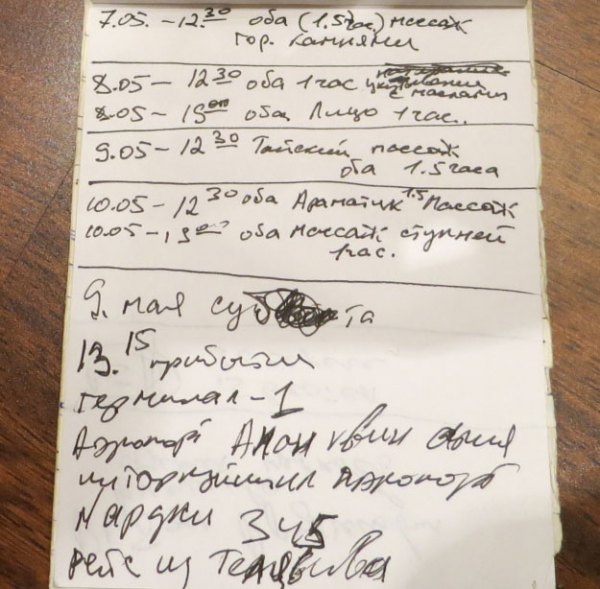 7.05. - 12.30 оба (1.5 час) массаж
гор. камнями
8.05 - 12 30 оба 1 час
с маслами
8.05 - 19 00 оба, Лицо 1 час..
9.05 - 12 30 Тайский массаж
оба 1.5 часа
10.05 - 12 30 оба Араматик 1.5 массаж
10.05 - 19 00 оба массаж ступней
1 час.
9. мая суб та
13.15 прибытия
терминал - 1
Аэропорт
Аэропорт
345
рейс из Телявива